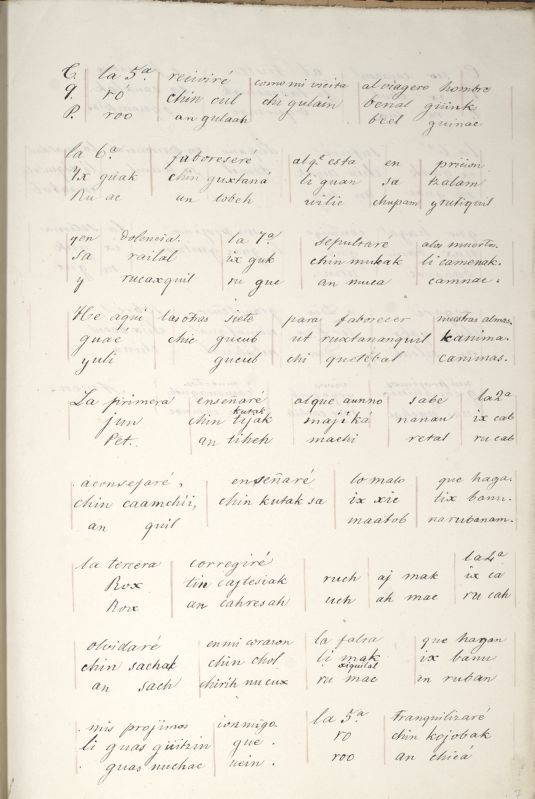 C. la 5.a reciviré como mi vicita al viagero hombre
Q. ró chin cul chi gulain benal güink
P. roo an gulaah beel guinac
la 6.a faboreseré al q.e esta en pricion
Yx guak chin guxtaná li guan sa tzalam
Ru ac un tobeh uilic chupam y rutiquil
y en dolencia. la 7.a sepultare a los muertos.
sa railal ix guk chin mukak li camenak.
y rucaxquil ru guc an muca camnac.
He aqui las otras siete para faborecer nuestras almas.
guaé chic gucub ut ruxtananquil kanima.
yuli gucub chi quetebal canimas.
La primera enseñaré al que aun no sabe la 2a
kutak
jun chin tijak maji ká nanau ix cab
Pet. an tiheh machi retal ru cab
aconsejaré, enseñaré lo malo que haga.
chin caamchii, chin kutak sa ix xic lix banu.
an quil maatob narubanam.
la tercera corregiré la 4a
Rox tin cajtesiak ruch aj mak ix ca
Rox an cahresah uch ah mac ru cah
olvidaré en mi corazon la falta que hagan
chin sachak chin chol li mak ix banu
xiquital
an sach chirih nu cux ru mac in ruban
mis projimos conmigo. la 5a tranquilizaré
li guas güitzin gue. ro chin kojobak
guas nuchac uein. roo an chicá
7